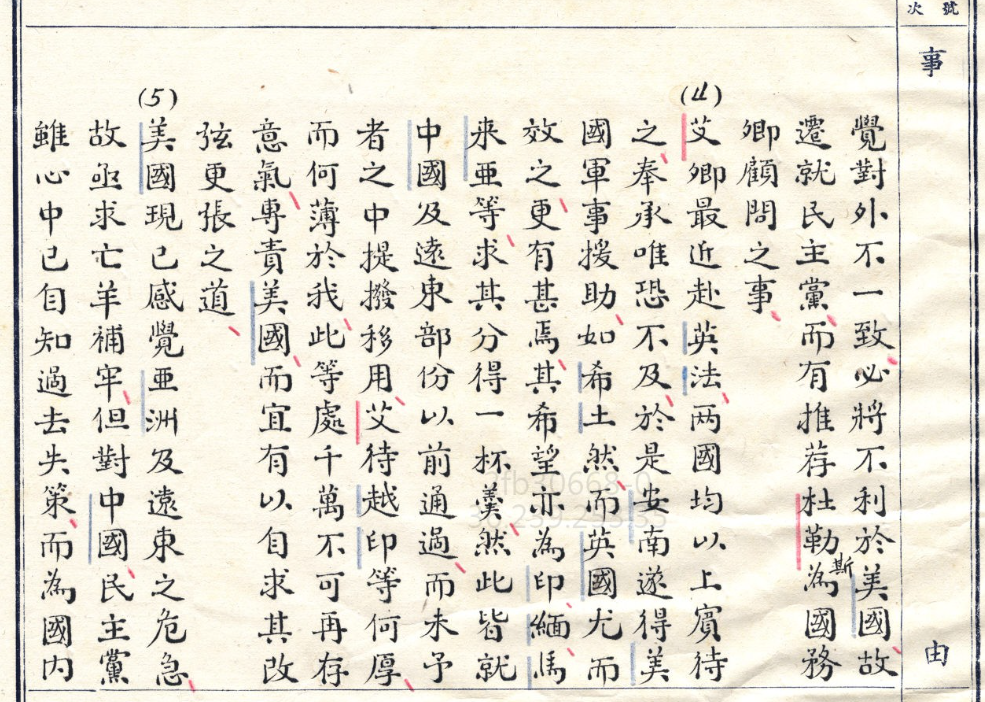 號次
事由
覺對外不一致必將不利於美國故
遷就民主黨而有推荐杜勒斯為國務
卿顧問之事
(4)
艾卿最近赴英法两國均以上賓待
之奉承唯恐不及於是安南遂得美
國軍事援助如希土然而英國尤而
效之更有甚焉其希望亦為印緬馬
来亚等求其分得一杯羹然此皆就
中國及遠東部份以前通過而未予
者之中提撥移用艾待越印等何厚
而何薄於我此等處千萬不可再存
意氣專責美國而宜有以自求其改
弦更張之道
(5)
美國現已感覺亜洲及遠東之危急
故亟求亡羊補牢但對中國民主黨
雖心中已自知過去失策而為國内